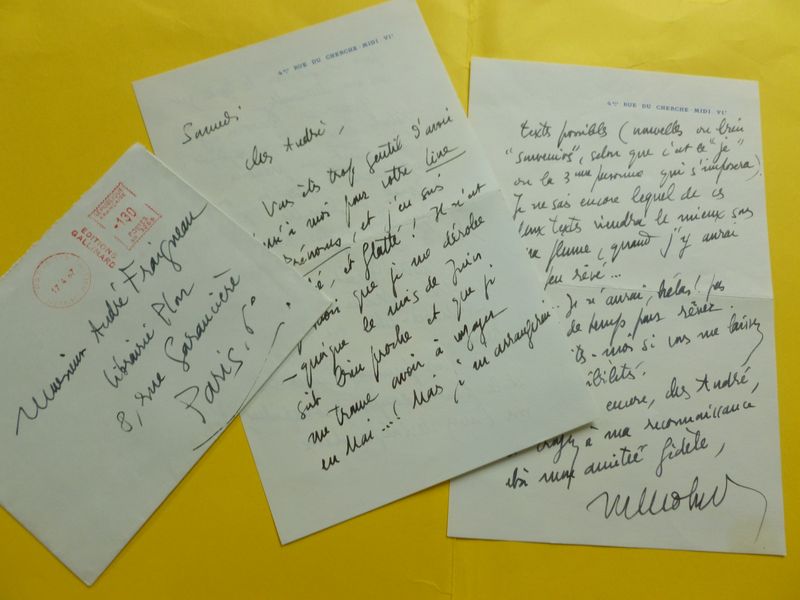 RÉPUBLIQUE FRANÇAISE
-130
POSTES
EDITIONS
GALLIMARD
17.4.
Monsieur André Fraigneau
Librairie Plon
8, rue Garancière
Paris. 6e
4 BIS RUE DU CHERCHE-MIDI VIe
Samedi
cher André,
Vous êtes trop gentil d'avoir
à moi pour votre livre
Prénoms, et j'en suis
et flatté! Il n'est
que je me dérobe
– quoique le mois de Juin
soit bien proche et que je
me trouve avoir à voyager
en Mai...! Mais je m'en arrangerai.
4 BIS RUE DU CHERCHE-MIDI VIe
textes possibles (nouvelles ou bien
"souvenirs", selon que c'est le "je"
ou la 3me personne qui s'imposera).
Je ne sais encore lequel de ces
deux textes viendra le mieux sous
ma plume, quand j'y aurai
rêvé...
Je n'aurai, hélas! pas
de temps pour rêver.
moi si vous me laissez
encore, cher André,
à ma reconnaissance
et à mon amitié fidèle,